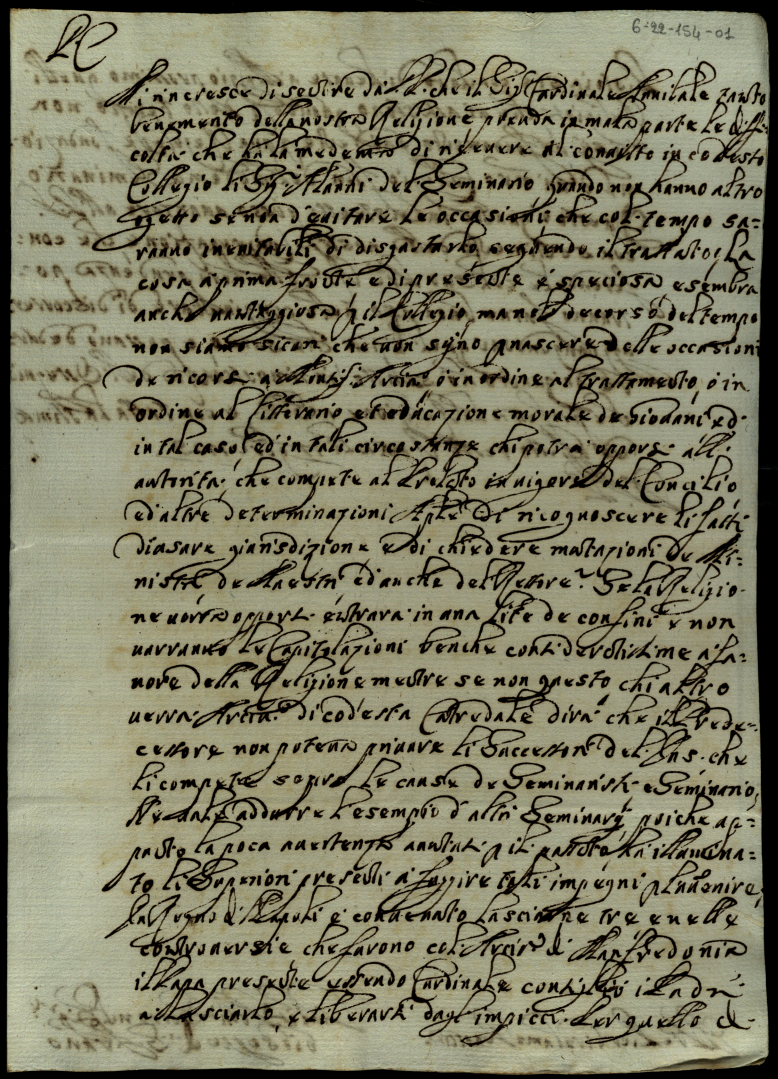 6-22-154-01
PC
M'incresce di sentire da V.R. che il Sig.r Cardinale Annibale tanto
benemerito della nostra Religione prenda in mala parte le diffi
coltà che ha la medema di ricevere al convitto in codesto
Collegio li Sig.ri Alunni del Seminario quando non hanno altro
ogetto se non d'evitare le occasioni che col tempo sa=
ranno inevitabili di disgustarlo seguendo il trattato. La
cosa à prima fronte e di presente è speciosa e sembra
anche vantaggiosa p il Collegio, ma nel decorso del tempo
non siamo sicuri che non sijno p nascere delle occasioni
de ricorsi a Monsig.r Arciv.o ò in ordine al trattamento, ò in
ordine al litterario et educazione morale de Giovani ed
in tal caso, ed in tali circostanze chi potrà opporsi all'
autorità che compete al Prelato in vigore del Concilio
ed altre determinazioni Aplice di ricognoscere li fatti
di usare giurisdizione e di chiedere mutazioni de Mi=
nistri de Maestri ed anche del Rettore. Se la Religio
ne vorrà opporsi entrarà in una lite de confini e non
varranno le Capitolazioni benche consideratissime a fa=
vore della Religione mentre se non questo chi altro
verrà Arciv.o di codesta Catredale dirà che il Prede=
cessore non poteva privare li Successori del Jus che
li compete sopra le cause de Seminaristi e Seminario,
Ne vale addurre l'esempio d'altri Seminarij poiche ap=
punto la poca avvertenza avutasi p il passato hà illumina=
to li Superiori presenti a fuggire tali impegni p l'avenire,
In Regno di Napoli è convenuto lasciarne tre e nelle
controversie che furono col Arciv.o di Manfredonia
il Papa presente essendo Cardinale consigliò i Padri
a lasciarlo, e liberarsi dagl'impicci. Per quello di